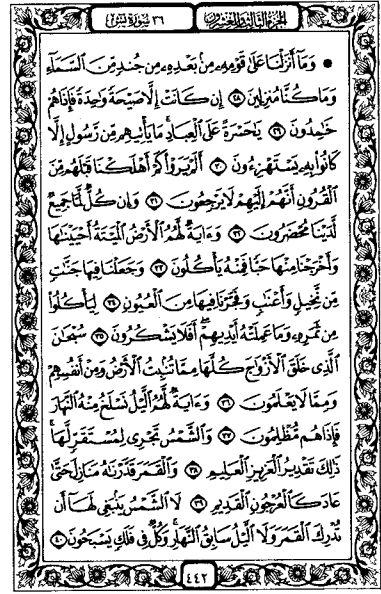 الجزء الثالث والعشرون ٣٦ سورة يس
۞ وَمَآ أَنزَلْنَا عَلَىٰ قَوْمِهِۦ مِنۢ بَعْدِهِۦ مِن جُندٍ مِّنَ ٱلسَّمَآءِ
وَمَا كُنَّا مُنزِلِينَ ٢٨ إِن كَانَتْ إِلَّا صَيْحَةً وَٰحِدَةً فَإِذَا هُمْ
خَٰمِدُونَ ٢٩ يَٰحَسْرَةً عَلَى ٱلْعِبَادِ ۚ مَا يَأْتِيهِم مِّن رَّسُولٍ إِلَّا
كَانُوا۟ بِهِۦ يَسْتَهْزِءُونَ ٣٠ أَلَمْ يَرَوْا۟ كَمْ أَهْلَكْنَا قَبْلَهُم مِّنَ
ٱلْقُرُونِ أَنَّهُمْ إِلَيْهِمْ لَا يَرْجِعُونَ ٣١ وَإِن كُلٌّ لَّمَّا جَمِيعٌ
لَّدَيْنَا مُحْضَرُونَ ٣٢ وَءَايَةٌ لَّهُمُ ٱلْأَرْضُ ٱلْمَيْتَةُ أَحْيَيْنَٰهَا
وَأَخْرَجْنَا مِنْهَا حَبًّا فَمِنْهُ يَأْكُلُونَ ٣٣ وَجَعَلْنَا فِيهَا جَنَّٰتٍ
مِّن نَّخِيلٍ وَأَعْنَٰبٍ وَفَجَّرْنَا فِيهَا مِنَ ٱلْعُيُونِ ٣٤ لِيَأْكُلُوا۟
مِن ثَمَرِهِۦ وَمَا عَمِلَتْهُ أَيْدِيهِمْ ۖ أَفَلَا يَشْكُرُونَ ٣٥ سُبْحَٰنَ
ٱلَّذِى خَلَقَ ٱلْأَزْوَٰجَ كُلَّهَا مِمَّا تُنۢبِتُ ٱلْأَرْضُ وَمِنْ أَنفُسِهِمْ
وَمِمَّا لَا يَعْلَمُونَ ٣٦ وَءَايَةٌ لَّهُمُ ٱلَّيْلُ نَسْلَخُ مِنْهُ ٱلنَّهَارَ
فَإِذَا هُم مُّظْلِمُونَ ٣٧ وَٱلشَّمْسُ تَجْرِى لِمُسْتَقَرٍّ لَّهَا ۚ
ذَٰلِكَ تَقْدِيرُ ٱلْعَزِيزِ ٱلْعَلِيمِ ٣٨ وَٱلْقَمَرَ قَدَّرْنَٰهُ مَنَازِلَ حَتَّىٰ
عَادَ كَٱلْعُرْجُونِ ٱلْقَدِيمِ ٣٩ لَا ٱلشَّمْسُ يَنۢبَغِى لَهَآ أَن
تُدْرِكَ ٱلْقَمَرَ وَلَا ٱلَّيْلُ سَابِقُ ٱلنَّهَارِ ۚ وَكُلٌّ فِى فَلَكٍ يَسْبَحُونَ ٤٠
٤٤٢